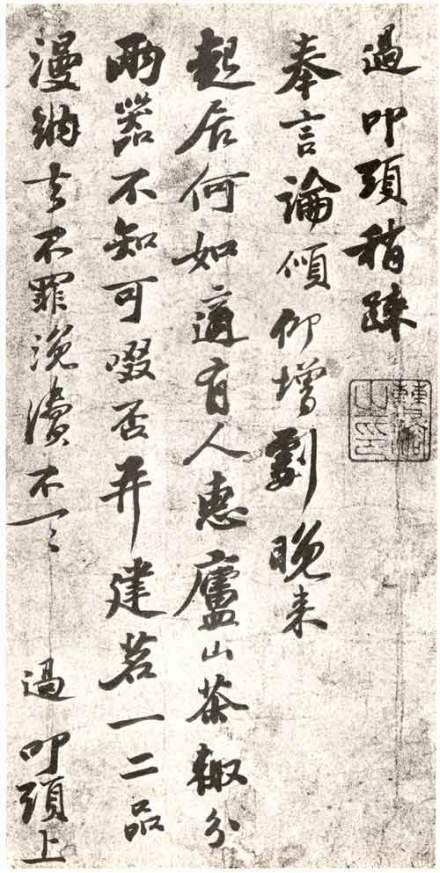 過叩頭稍疎
奉言論傾仰增劇晚来
起居何如適有人惠廬山茶輙分
兩器不知可啜否并建茗一二品
漫納去不罪浼瀆不一〻 過叩頭上